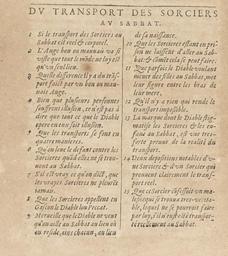 DV TRANSPORT DES SORCIERS
AV SABBAT.
1 Si le transport des Sorciers au
Sabbat est reel & corporel.
2 L'Ange bon ou mauvais va si
viste que tout le monde au ley est
qu'vn
3 Quelle difference il y a du trãs-
port faict par vn bon ou mau-
vais Ange.
4 Bien que plusieurs personnes
souffrent illusion, ce n'est pas à
dire que tout ce que le Diable
opere en eux soit illusion.
5 Que les transports se font en
quatre manieres.
6 Qu'on se defendant contre les
Sorciers qu'ils elles ne se trou-
vent au Sabbat.
7 S'il est vray ce qu'on dict, que
les vrayes Sorcieres ne pleurẽt
iamais.
8 Que les Sorcieres appellent en
Gascon le Diable lou Peccat.
9 Merueille que le Diable ne veut
qu'on aille au Sabbat au lieu où
on reside, ains chacun, au lieu
de sa naissance.
10 Que les Sorcieres estant en pri-
son ne laissent d'aller au Sab-
bat & comment cela se peut faire.
11 Que parfois le Diable voulant
mener des filles au Sabbat, met
leur figure entre les bras de
leur mere.
12 Qu'il n'y a rien qui rende le
transport impossible.
13 La marque dont le Diable
les Sorcieres & les en-
fans au Sabbat, est vne tres-
forte preuue de la realité du
transport.
14 Deux depositions notables d'v-
ne Sorciere & d'vn Sorcier qui
prennent clairement que le trans-
port reel.
15 Que ce Sorcier
lequel ne se pouuoit faire
par luy, s'il n'eust esté transpor-
té reellement au Sabbat.